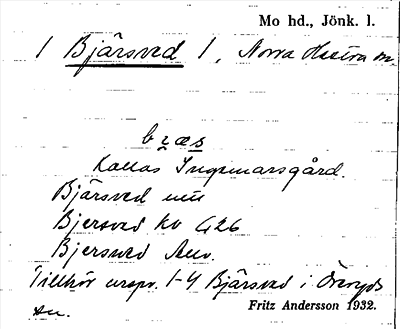 Mo hd., Jönk. l.
1 Bjärsved 1, Norra Hestra sn.
bræs
Kallas Ingemarsgård.
Bjärsved
Bjersved KB 426
Bjersved
Tillhör urspr. 1-4 Bjärsved i Öreryds
sn.
Fritz Andersson 1932.